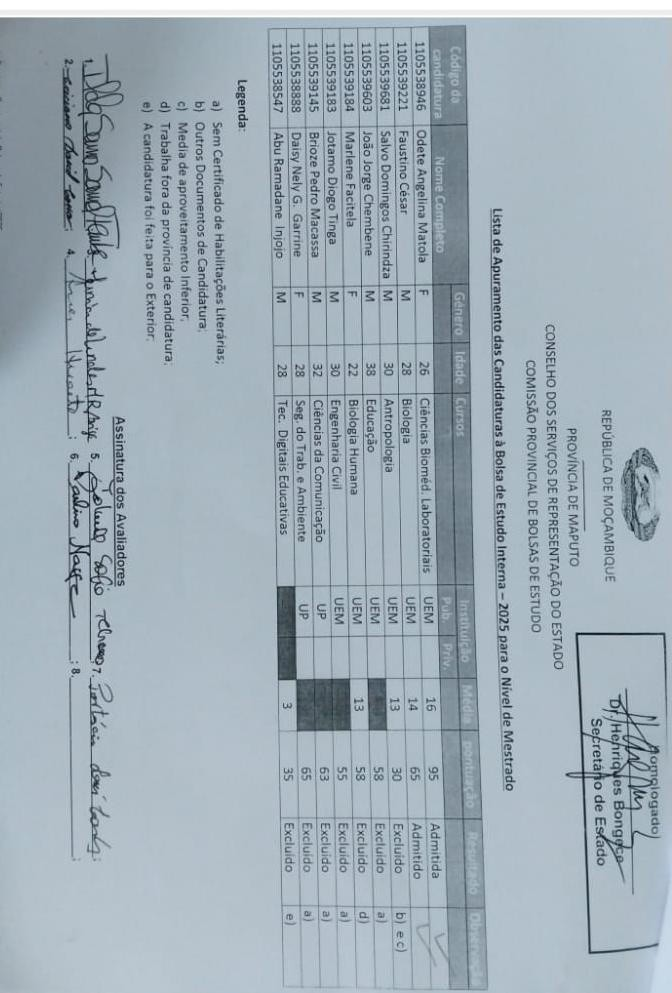 Homologado
Dr. Henriques Bongece
Secretário de Estado
REPÚBLICA DE MOÇAMBIQUE
PROVÍNCIA DE MAPUTO
CONSELHO DOS SERVIÇOS DE REPRESENTAÇÃO DO ESTADO
COMISSÃO PROVINCIAL DE BOLSAS DE ESTUDO
Lista de Apuramento das Candidaturas à Bolsa de Estudo Interna – 2025 para o Nível de Mestrado
Código da candidatura Nome Completo Género Idade Cursos Instituição Pub. Priv. Média pontuação Resultado
1105538946 Odete Angelina Matola F 26 Ciências Bioméd. Laboratoriais UEM 16 95 Admitida
1105539221 Faustino César M 28 Biologia UEM 14 65 Admitido
1105539681 Salvo Domingos Chirindza M 30 Antropologia UEM 13 30 Excluído b) e c)
1105539603 João Jorge Chembene M 38 Educação UEM 58 Excluído a)
1105539184 Marlene Facitela F 22 Biologia Humana UEM 13 58 Excluído d)
1105539183 Jotamo Diogo Tinga M 30 Engenharia Civil UEM 55 Excluído a)
1105539145 Brioze Pedro Macassa M 32 Ciências da Comunicação UP 63 Excluído a)
1105538888 Daisy Nely G. Garrine F 28 Seg. do Trab. e Ambiente UP 65 Excluído a)
1105538547 Abu Ramadane Injojo M 28 Tec. Digitais Educativas 3 35 Excluído e)
Legenda:
a) Sem Certificado de Habilitações Literárias;
b) Outros Documentos de Candidatura;
c) Media de aproveitamento Inferior;
d) Trabalha fora da província de candidatura;
e) A candidatura foi feita para o Exterior;
Assinatura dos Avaliadores
1. 5. 7.
2. 4. 6. 8.